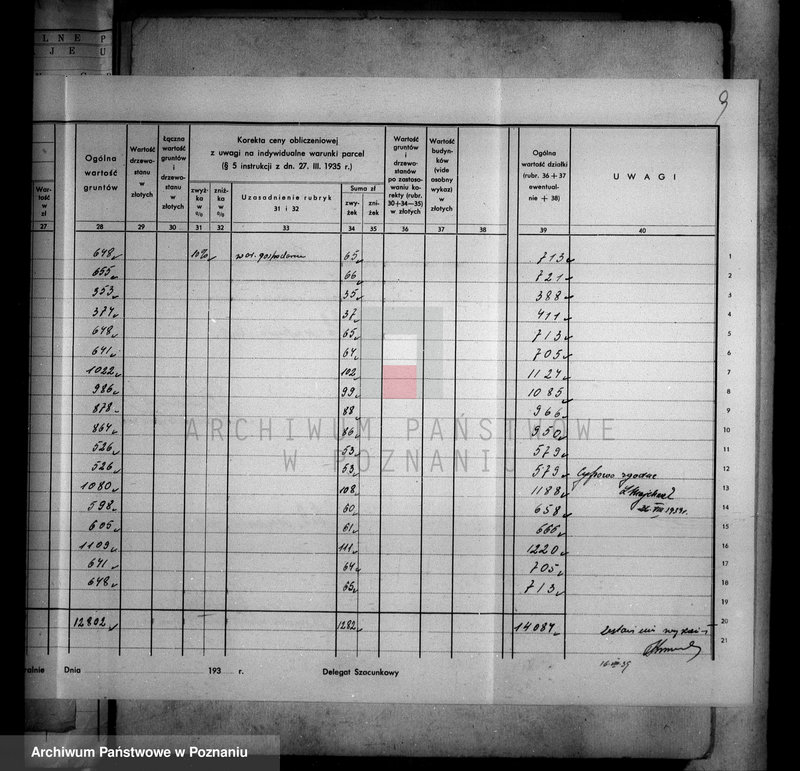 9
L N E P
J E U
War-
tość
w
zł
Ogólna
wartość
gruntów
Wartość
drzewo-
stanu
w
złotych
Łączna
wartość
gruntów
i
drzewo-
stanu
w
złotych
Korekta ceny obliczeniowej
z uwagi na indywidualne warunki parcel
(§ 5 instrukcji z dn. 27. III. 1935 r.)
zwyż-
ka
w
%
zniż-
ka
w
%
Uzasadnienie rubryk
31 i 32
Suma zł
zwy-
żek
zni-
żek
Wartość
gruntów
i
drzewo-
stanów
po zastoso-
waniu ko-
rekty (rubr.
30+34—35)
w złotych
Wartość
budyn-
ków
(vide
osobny
wykaz)
w
złotych
Ogólna
wartość działki
(rubr. 36 + 37
ewentual-
nie + 38)
UWAGI
27 28 29 30 31 32 33 34 35 36 37 38 39 40
648 10% 65 713 1
655 66 721 2
353 35 388 3
374 37 411 4
648 65 713 5
641 64 705 6
1022 102 1124 7
986 99 1085 8
878 88 966 9
864 86 950 10
526 53 579 11
526 53 579 12
1080 108 1188 13
598 60 658 14
605 61 666 15
1109 111 1220 16
641 64 705 17
648 65 713 18
19
12802 1282 14084 20
21
Cyfrowo zgodne
26 VIII 1939 r.
16 VIII 39
ralnie Dnia 193 r. Delegat Szacunkowy
ARCHIWUM PAŃSTWOWE
W POZNANIU
Archiwum Państwowe w Poznaniu